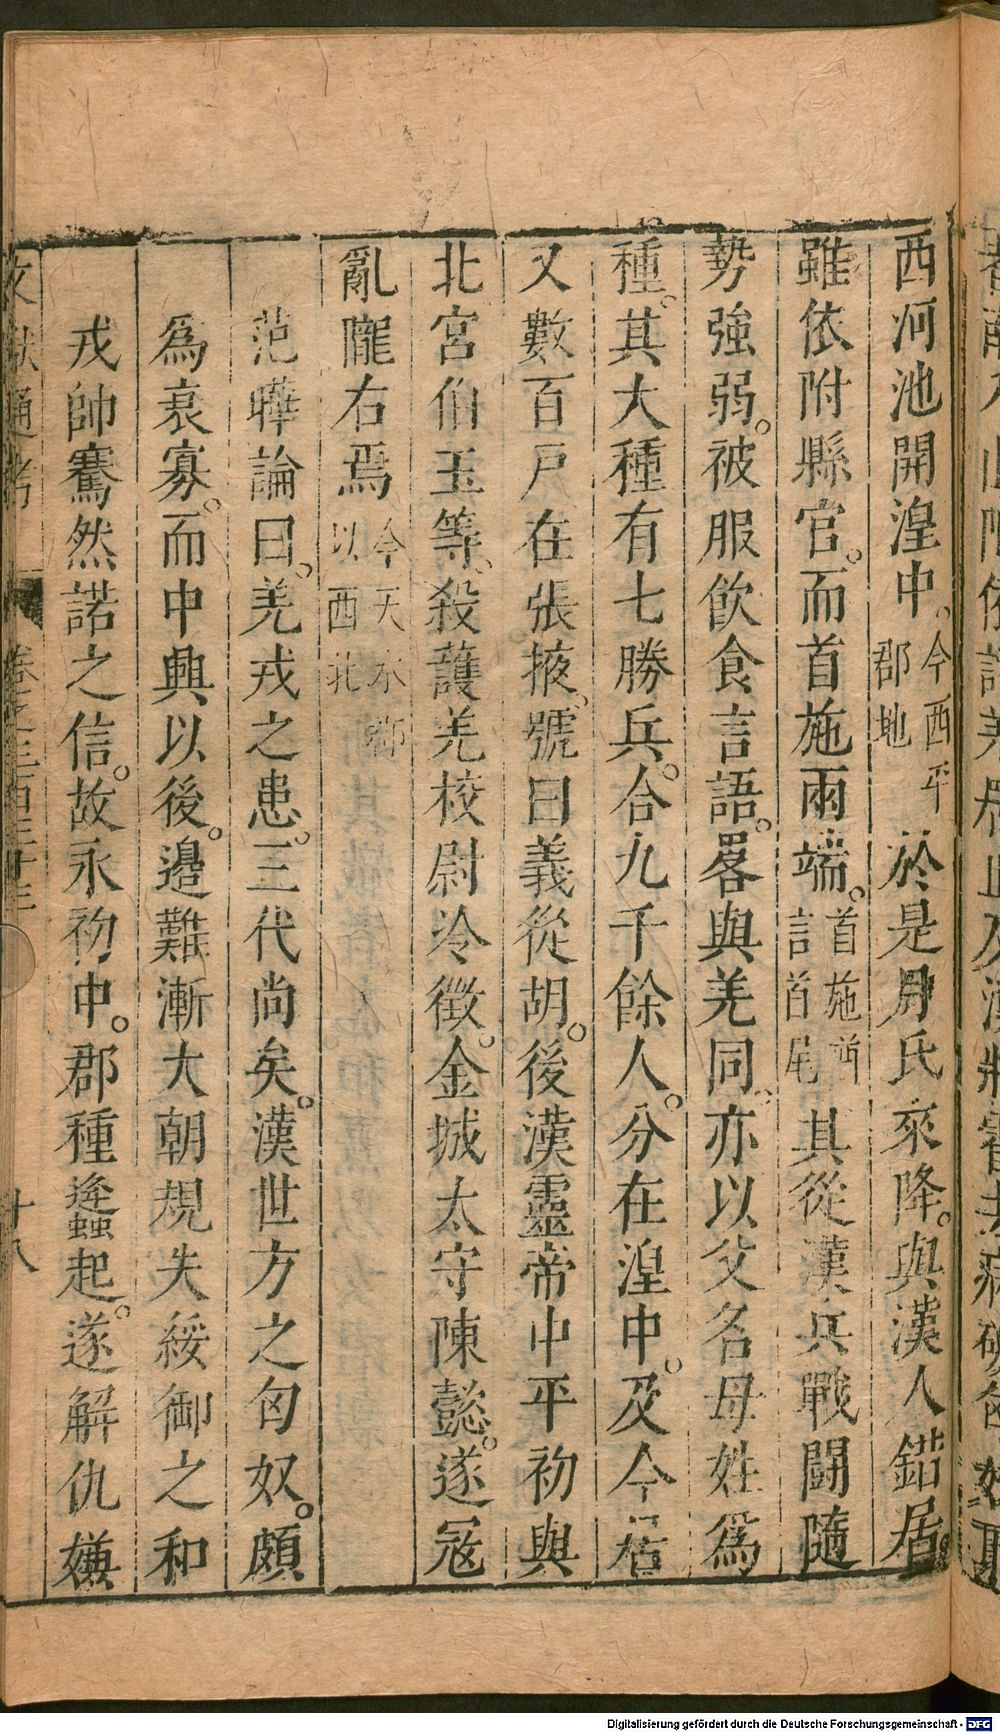 西河池開湟中。今西平郡地於是月氏來降。與漢人錯居
雖依附縣官。而首施兩端。首施猶言首尾其從漢兵戰鬪隨
勢強弱。被服飲食言語。畧與羌同。亦以父名母姓爲
種。其大種有七勝兵。合九千餘人。分在湟中。及令居
又數百戸在張掖。號曰義從胡。後漢靈帝中平初與
北宮伯玉等。殺護羌校尉冷徵。金城太守陳懿。遂冦
亂隴右焉今天水郡以西北
范曄論曰。羌戎之患。三代尚矣。漢世方之匈奴。頗
爲衰寡。而中興以後。邉難漸大朝規失綏御之和
戎帥騫然諾之信。故永初中。郡種蠭起。遂解仇嫌
文獻通考 卷之三百三十三 十八
Digitalisierung gefördert durch die Deutsche Forschungsgemeinschaft - DFG